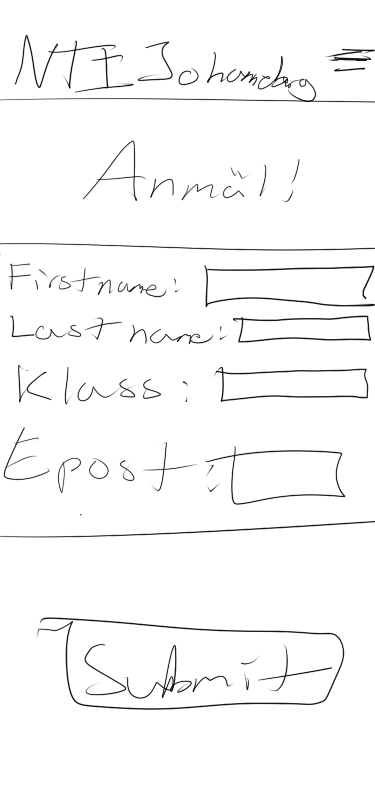 NTI Johanneberg
Anmäl!
Firstname:
Last name:
Klass:
Epost:
Submit